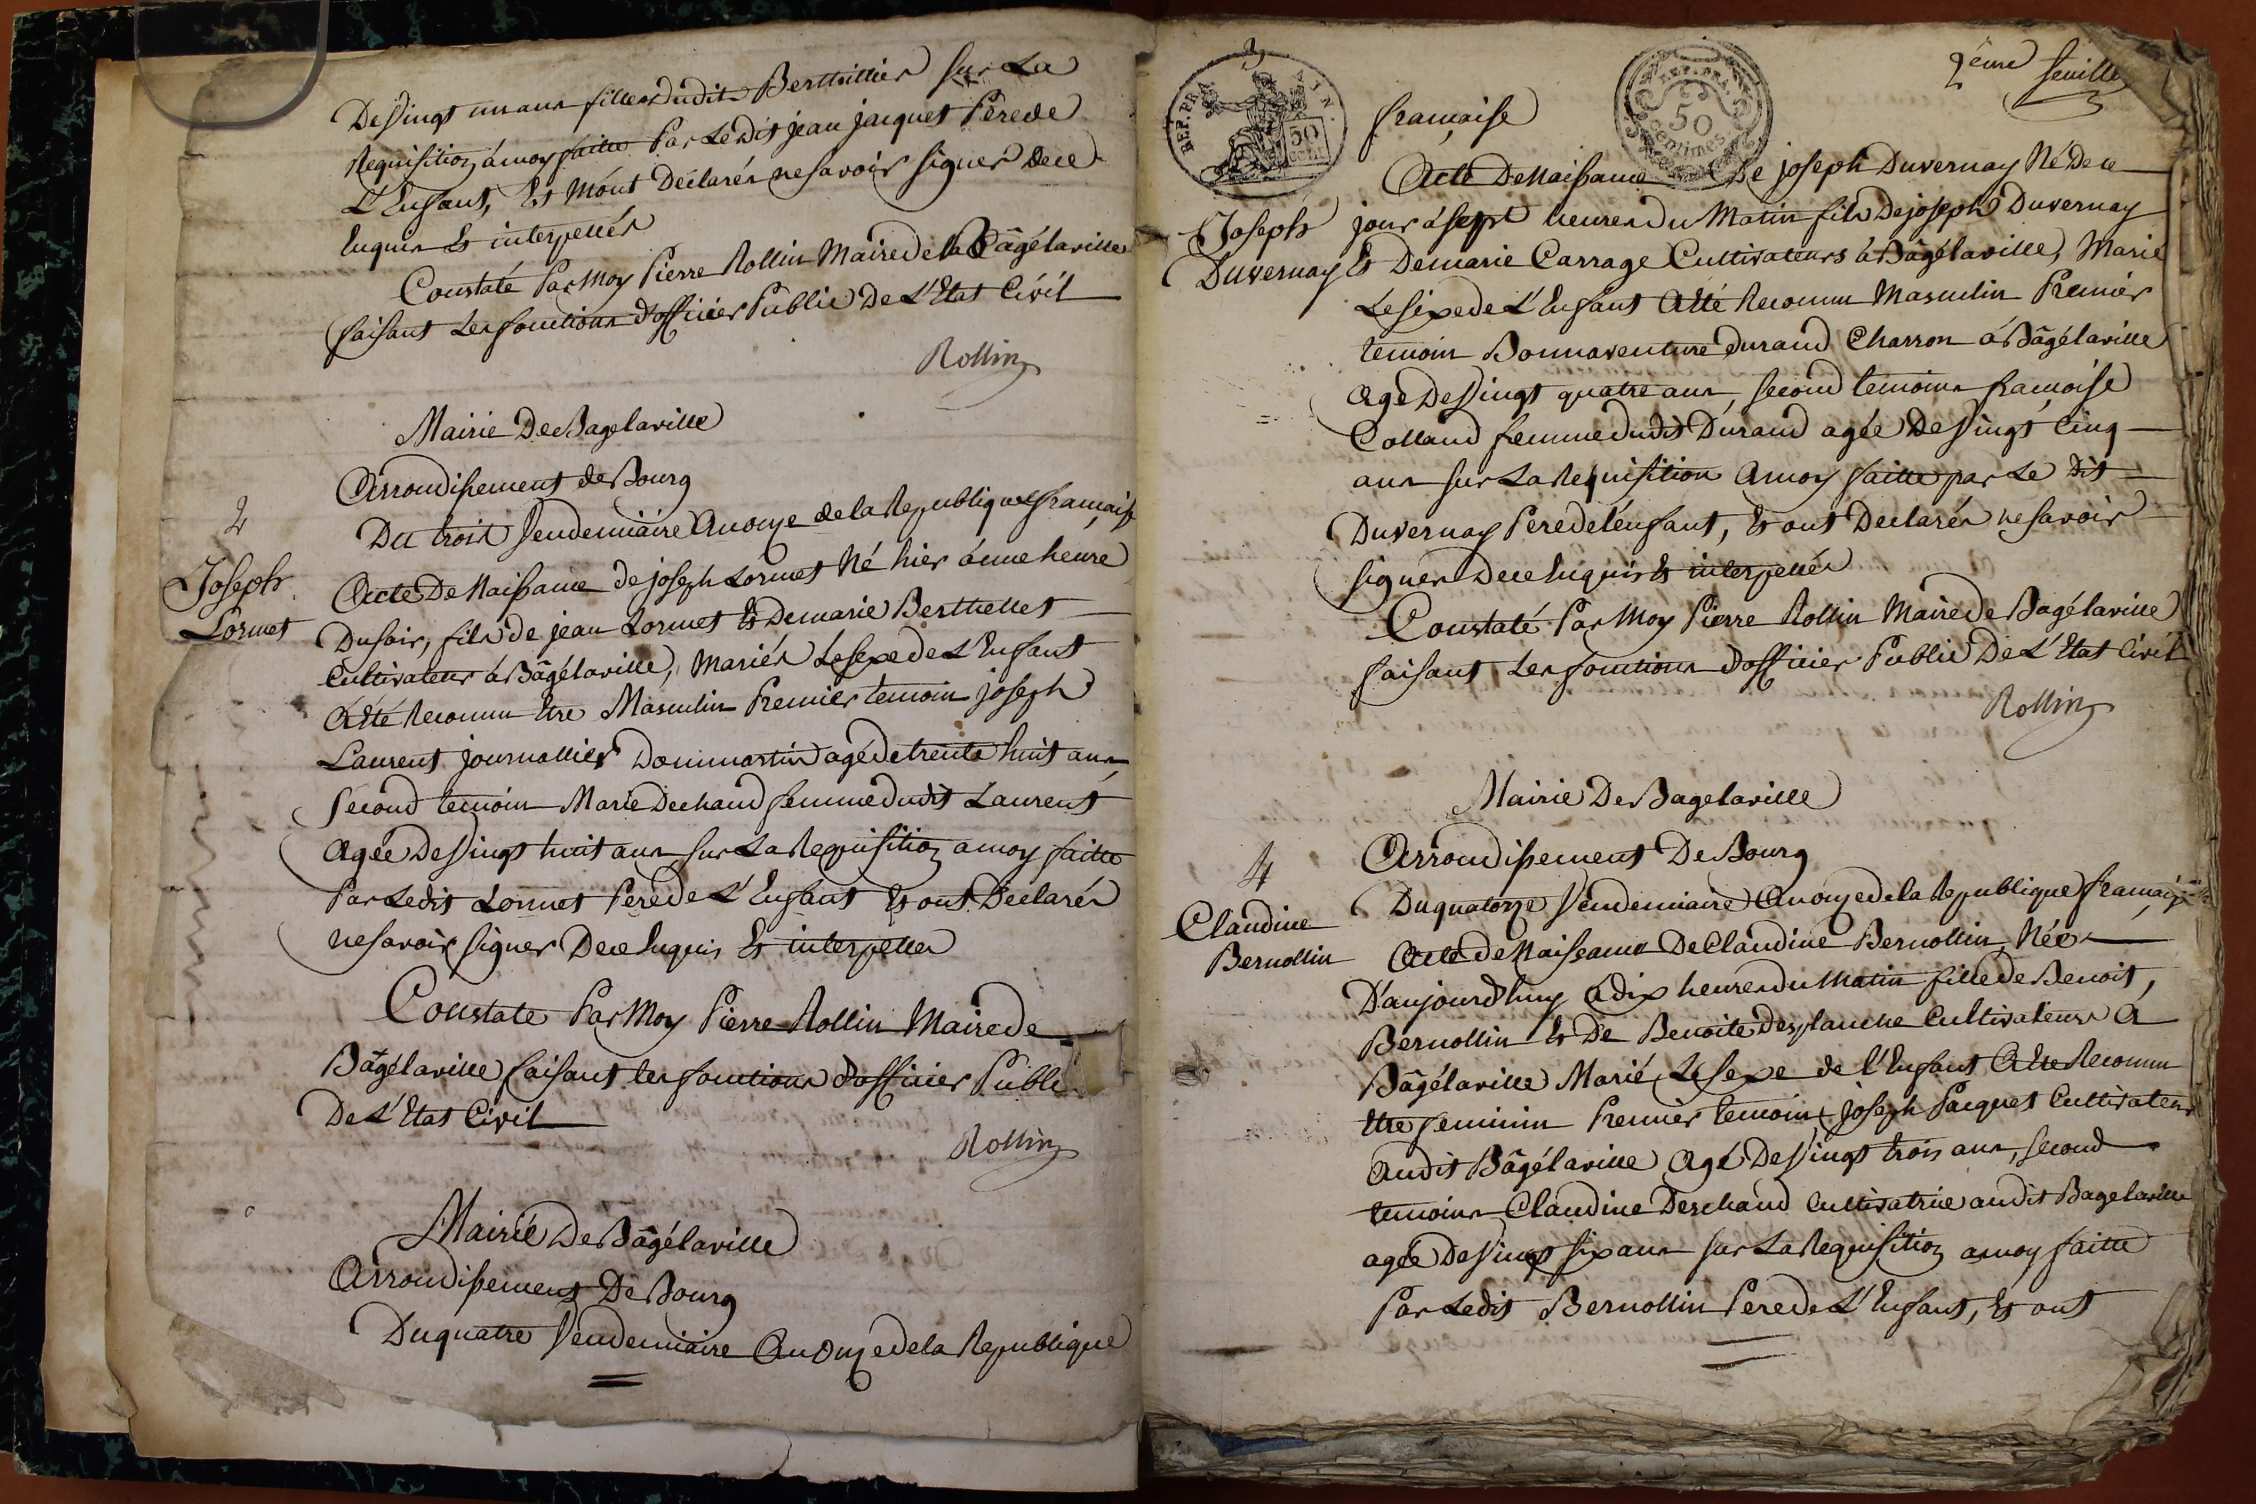 Devingt un ans filles dudit Berthillier sur La
Requisition á moy faitte Par Le dit jean jacquet Pere de
L'Enfant, Et M'ont Déclarés ne savoir signer de ce
Enquis Et interpellés
Constaté Par Moy Pierre Rollin Maire de la Bâgélaville
faisant Les fonctions d'officier Public De L'Etat Civil
Rollin
Mairie De Bagelaville
Arrondissement de Bourg
2
Du trois Vendemiaire An onze de la Republique française
Joseph
Lormet
Acte De Naissance de joseph Lormet Né hier á une heure
Du soir, fils de jean Lormet Et De marie Berthellet
Cultivateurs á Bâgélaville, Mariés Le sexe de L'Enfant
A Eté Reconnu Etre Masculin Premier temoin joseph
Laurent journallier Dommartin agé de trente huit ans
Second temoin Marie Dechaud femme dudit Laurent
Agée De Vingt huit ans sur La Requisition a moy faitte
Par Ledit Lormet Pere de L'Enfant Et ont Déclarés
ne savoir signer De ce Enquis Et interpelles
Constate Par Moy Pierre Rollin Maire de
Bâgélaville faisant les fonctions d'officier Publi
De L'Etat Civil
Rollin
Mairie De Bâgélaville
Arrondissement De Bourg
Du quatre Vendemiaire An Onze de la Republique
2eme feuille
3
REP. FRA
AIN.
50
CENT.
REP. FRA.
50
centimes
française
Acte De Naissance De joseph Duvernay Né De ce
Joseph
Duvernay
jour á sept heures du Matin fils De joseph Duvernay
Et De marie Carrage Cultivateurs á Bâgélaville, Marié
Le sexe de L'Enfant A Eté Reconnu Masculin Premier
temoin Bonnaventure durand Charron á Bâgélaville
Agé De Vingt quatre ans, second temoins françoise
Colland femme dudit Durand agée De Vingt Cinq
ans sur La Requisition A moy faitte par Le dit
Duvernay Pere de l'enfant, Et ont Declarés ne savoir
signer De ce Enquis Et interpellés
Constaté Par Moy Pierre Rollin Maire de Bagélaville
faisant Les fonctions d'officier Public De L'Etat Civil
Rollin
Mairie De Bagelaville
Arrondissement De Bourg
4
Du quatorze Vendemiaire An onze de la Republique française
Claudine
Bernollin
Acte de Naissance De Claudine Bernollin Née
D'aujourd'huy á dix heures du Matin fille de Benoit,
Bernollin Et De Benoite Desplanche Cultivateurs A
Bâgélaville Marié Le sexe de l'Enfant A Ete Reconnu
Etre feminin Premier temoin joseph Pacquet Cultivateur
Audit Bâgélaville Agé De Vingt trois ans, second
temoins Claudine Deschaud Cultivatrice audit Bagelaville
agée De Vingt six ans sur La Requisition a moy faitte
Par Ledit Bernollin Pere de L'Enfant, Et ont